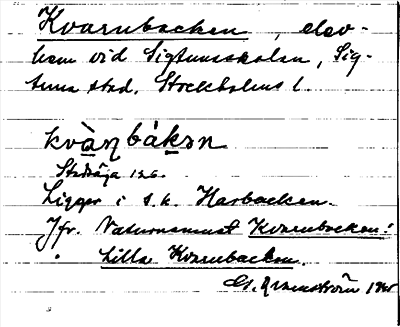 Kvarnbacken, elev-
hem vid Sigtunaskolan, Sig-
tuna stad, Stockholms l.
kvàɳbákən
Stadsäga 126.
Ligger i s.k. Harbacken.
Jfr. Naturnamnet Kvarnbacken!
Lilla Kvarnbacken.